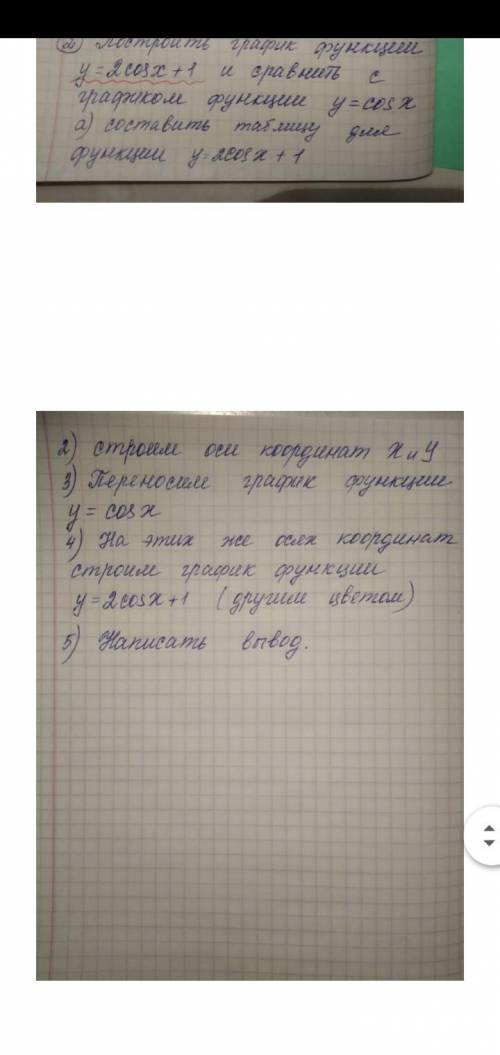 ② Построить график функции
y = 2cosx + 1 и сравнить с
графиком функции y = cosx
а) составить таблицу для
функции y = 2cosx + 1
2) строим оси координат x и y
3) Переносим график функции
y = cosx
4) На этих же осях координат
строим график функции
y = 2cosx + 1 (другим цветом)
5) Написать вывод.